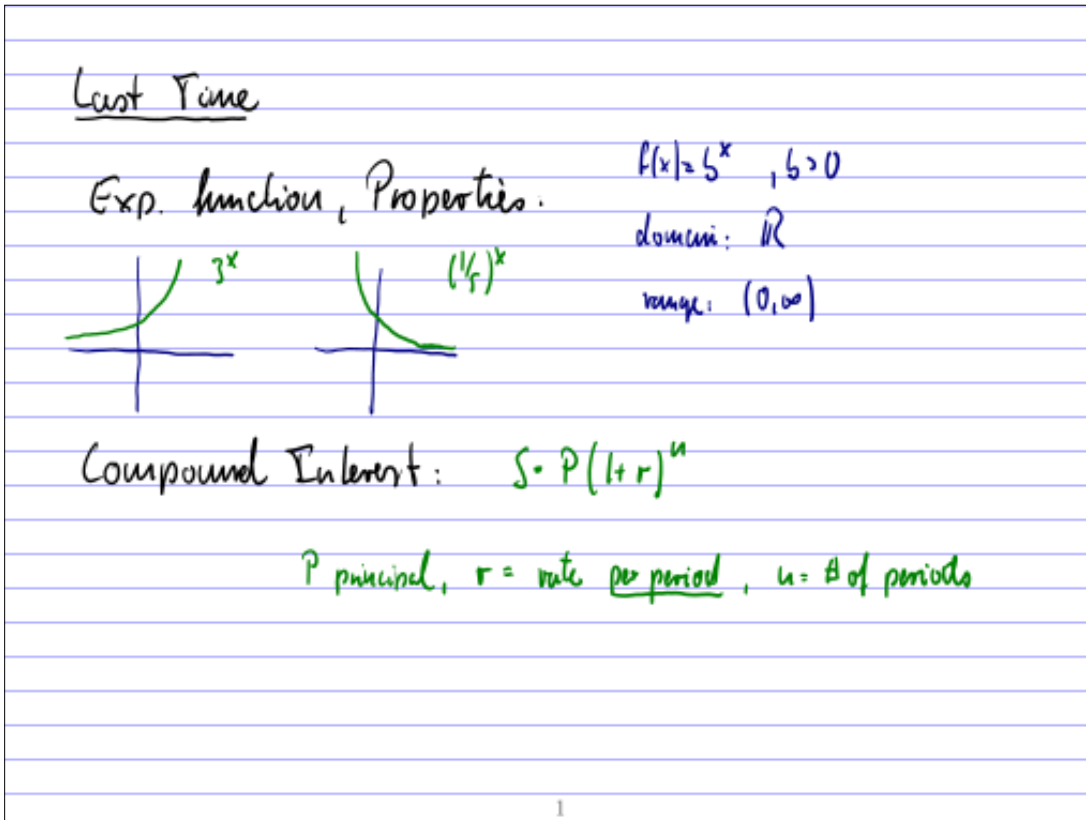 Last Time
Exp. function, Properties.
f(x)=b^x , b>0
domain: ℝ
range: (0,∞)
3^x
(1/5)^x
Compound Interest: S = P(1+r)^n
P principal, r = rate per period, n = # of periods
1